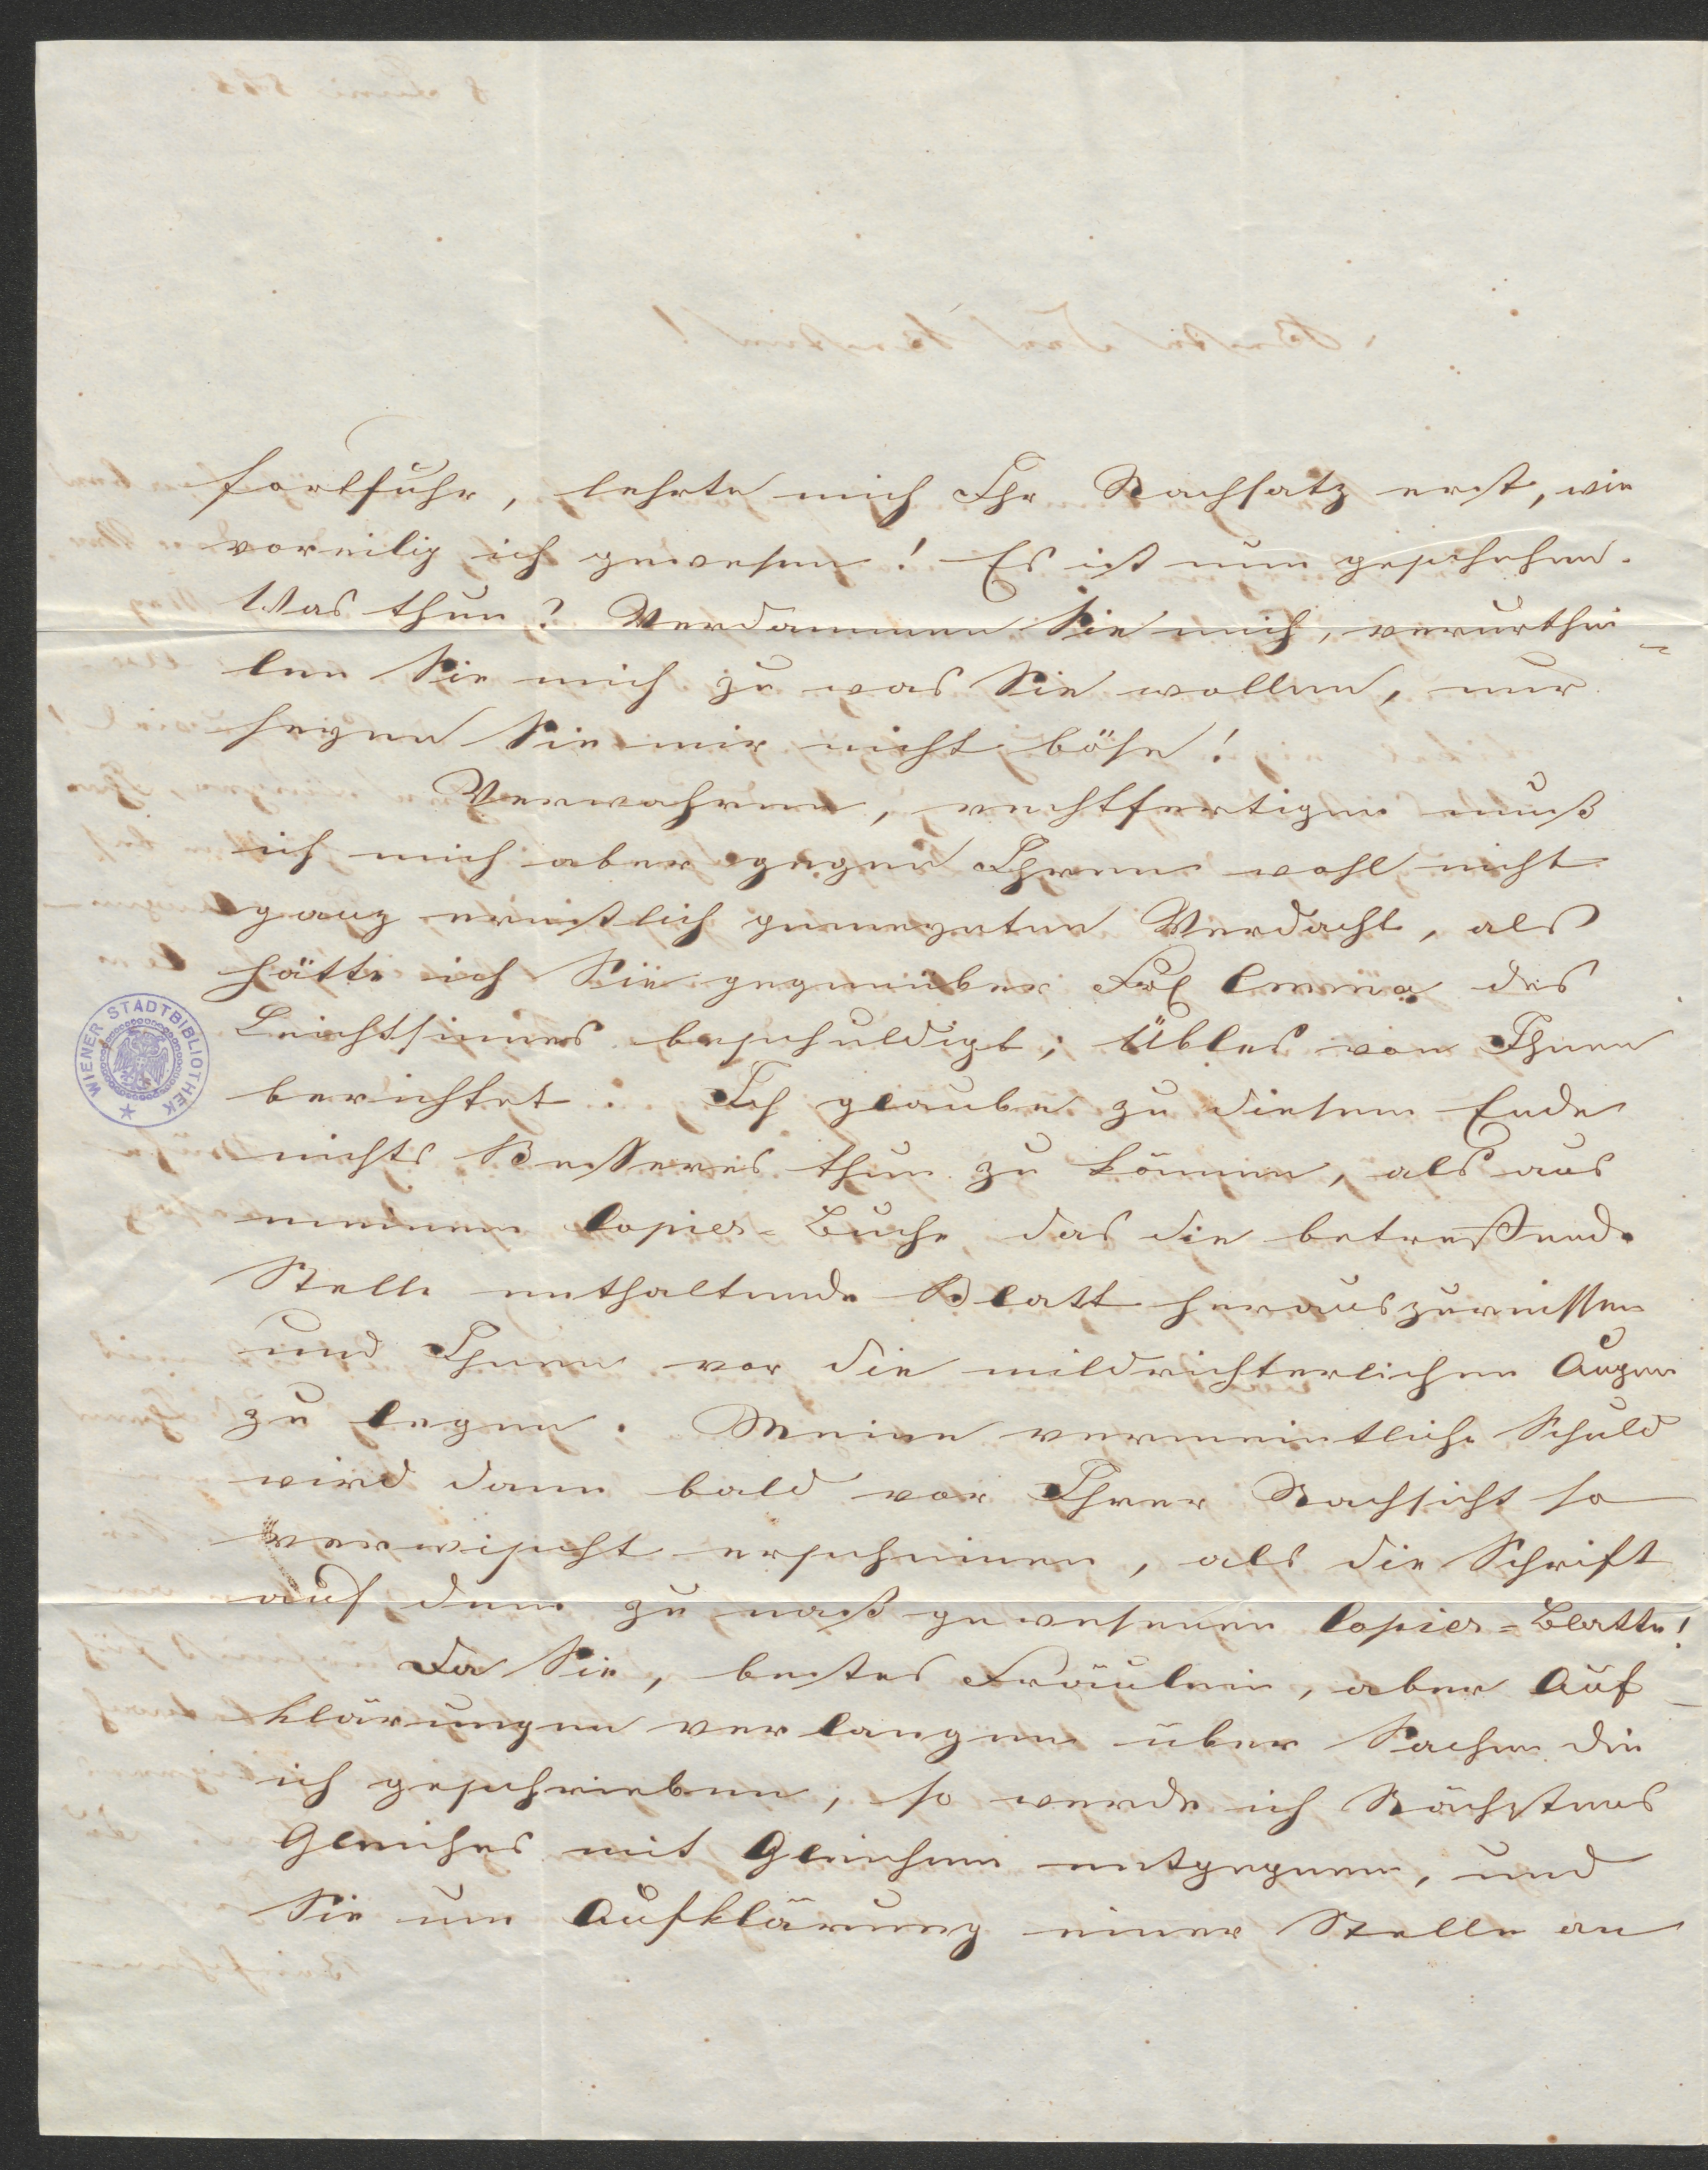 fortfuhr, lehrte mich Ihr Nachsatz erst, wie
voreilig ich gewesen! Es ist nun geschehen.
Was thun? Verdammen Sie mich, verurthei=
len Sie mich zu was Sie wollen, nur
seyen Sie mir nicht böse!
Verwahren, rechtfertigen muß
ich mich aber gegen Ihren wohl nicht
ganz ernstlich gemeynten Verdacht, als
hätte ich Sie gegenüber Frl Emma des
Leichtsinnes beschuldigt; Übles von Ihnen
berichtet. Ich glaube zu diesem Ende
nichts Besseres thun zu können, als aus
meinem Copier=Buche das die betreffende
Stelle enthaltende Blatt herauszureissen
und Ihnen vor die mildrichterlichen Augen
zu legen. Meine vermeintliche Schuld
wird dann bald vor Ihrer Nachsicht so
verwischt erscheinen, als die Schrift
auf dem zu naß gewesenen Copier=Blatte!
Da Sie, bestes Fräulein, aber Auf-
klärungen verlangen über Sachen die
ich geschrieben, so werde ich Nächstens
Gleiches mit Gleichem entgegnen, und
Sie um Aufklärung einer Stelle an
WIENER STADTBIBLIOTHEK